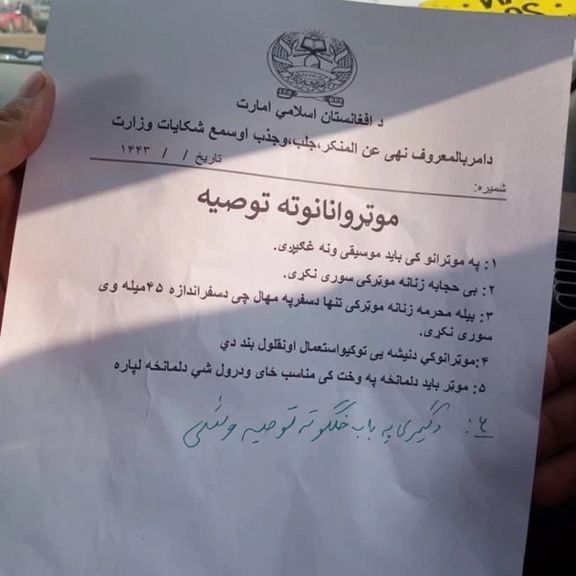 د افغانستان اسلامي امارت
دامربالمعروف نهی عن المنکر،جلب،وجذب اوسمع شکایات وزارت
شمیره: تاریخ / / ۱۴۴۳
موټروانانوته توصیه
۱: په موټرانو کی باید موسیقی ونه غګیږی.
۲: بی حجابه زنانه موټرکی سوری نکړی.
۳: بیله محرمه زنانه موټرکی تنها دسفرپه مهال چی دسفراندازه ۴۵میله وی
سوری نکړی.
۴:موټرانوکي دنیشه یی توکیواستعمال اونقلول بند دي
۵: موټر باید دلمانځه په وخت کی مناسب ځای ودرول شي دلمانځه لپاره
۶: دګیری په باب خلګو ته توصیه وشی